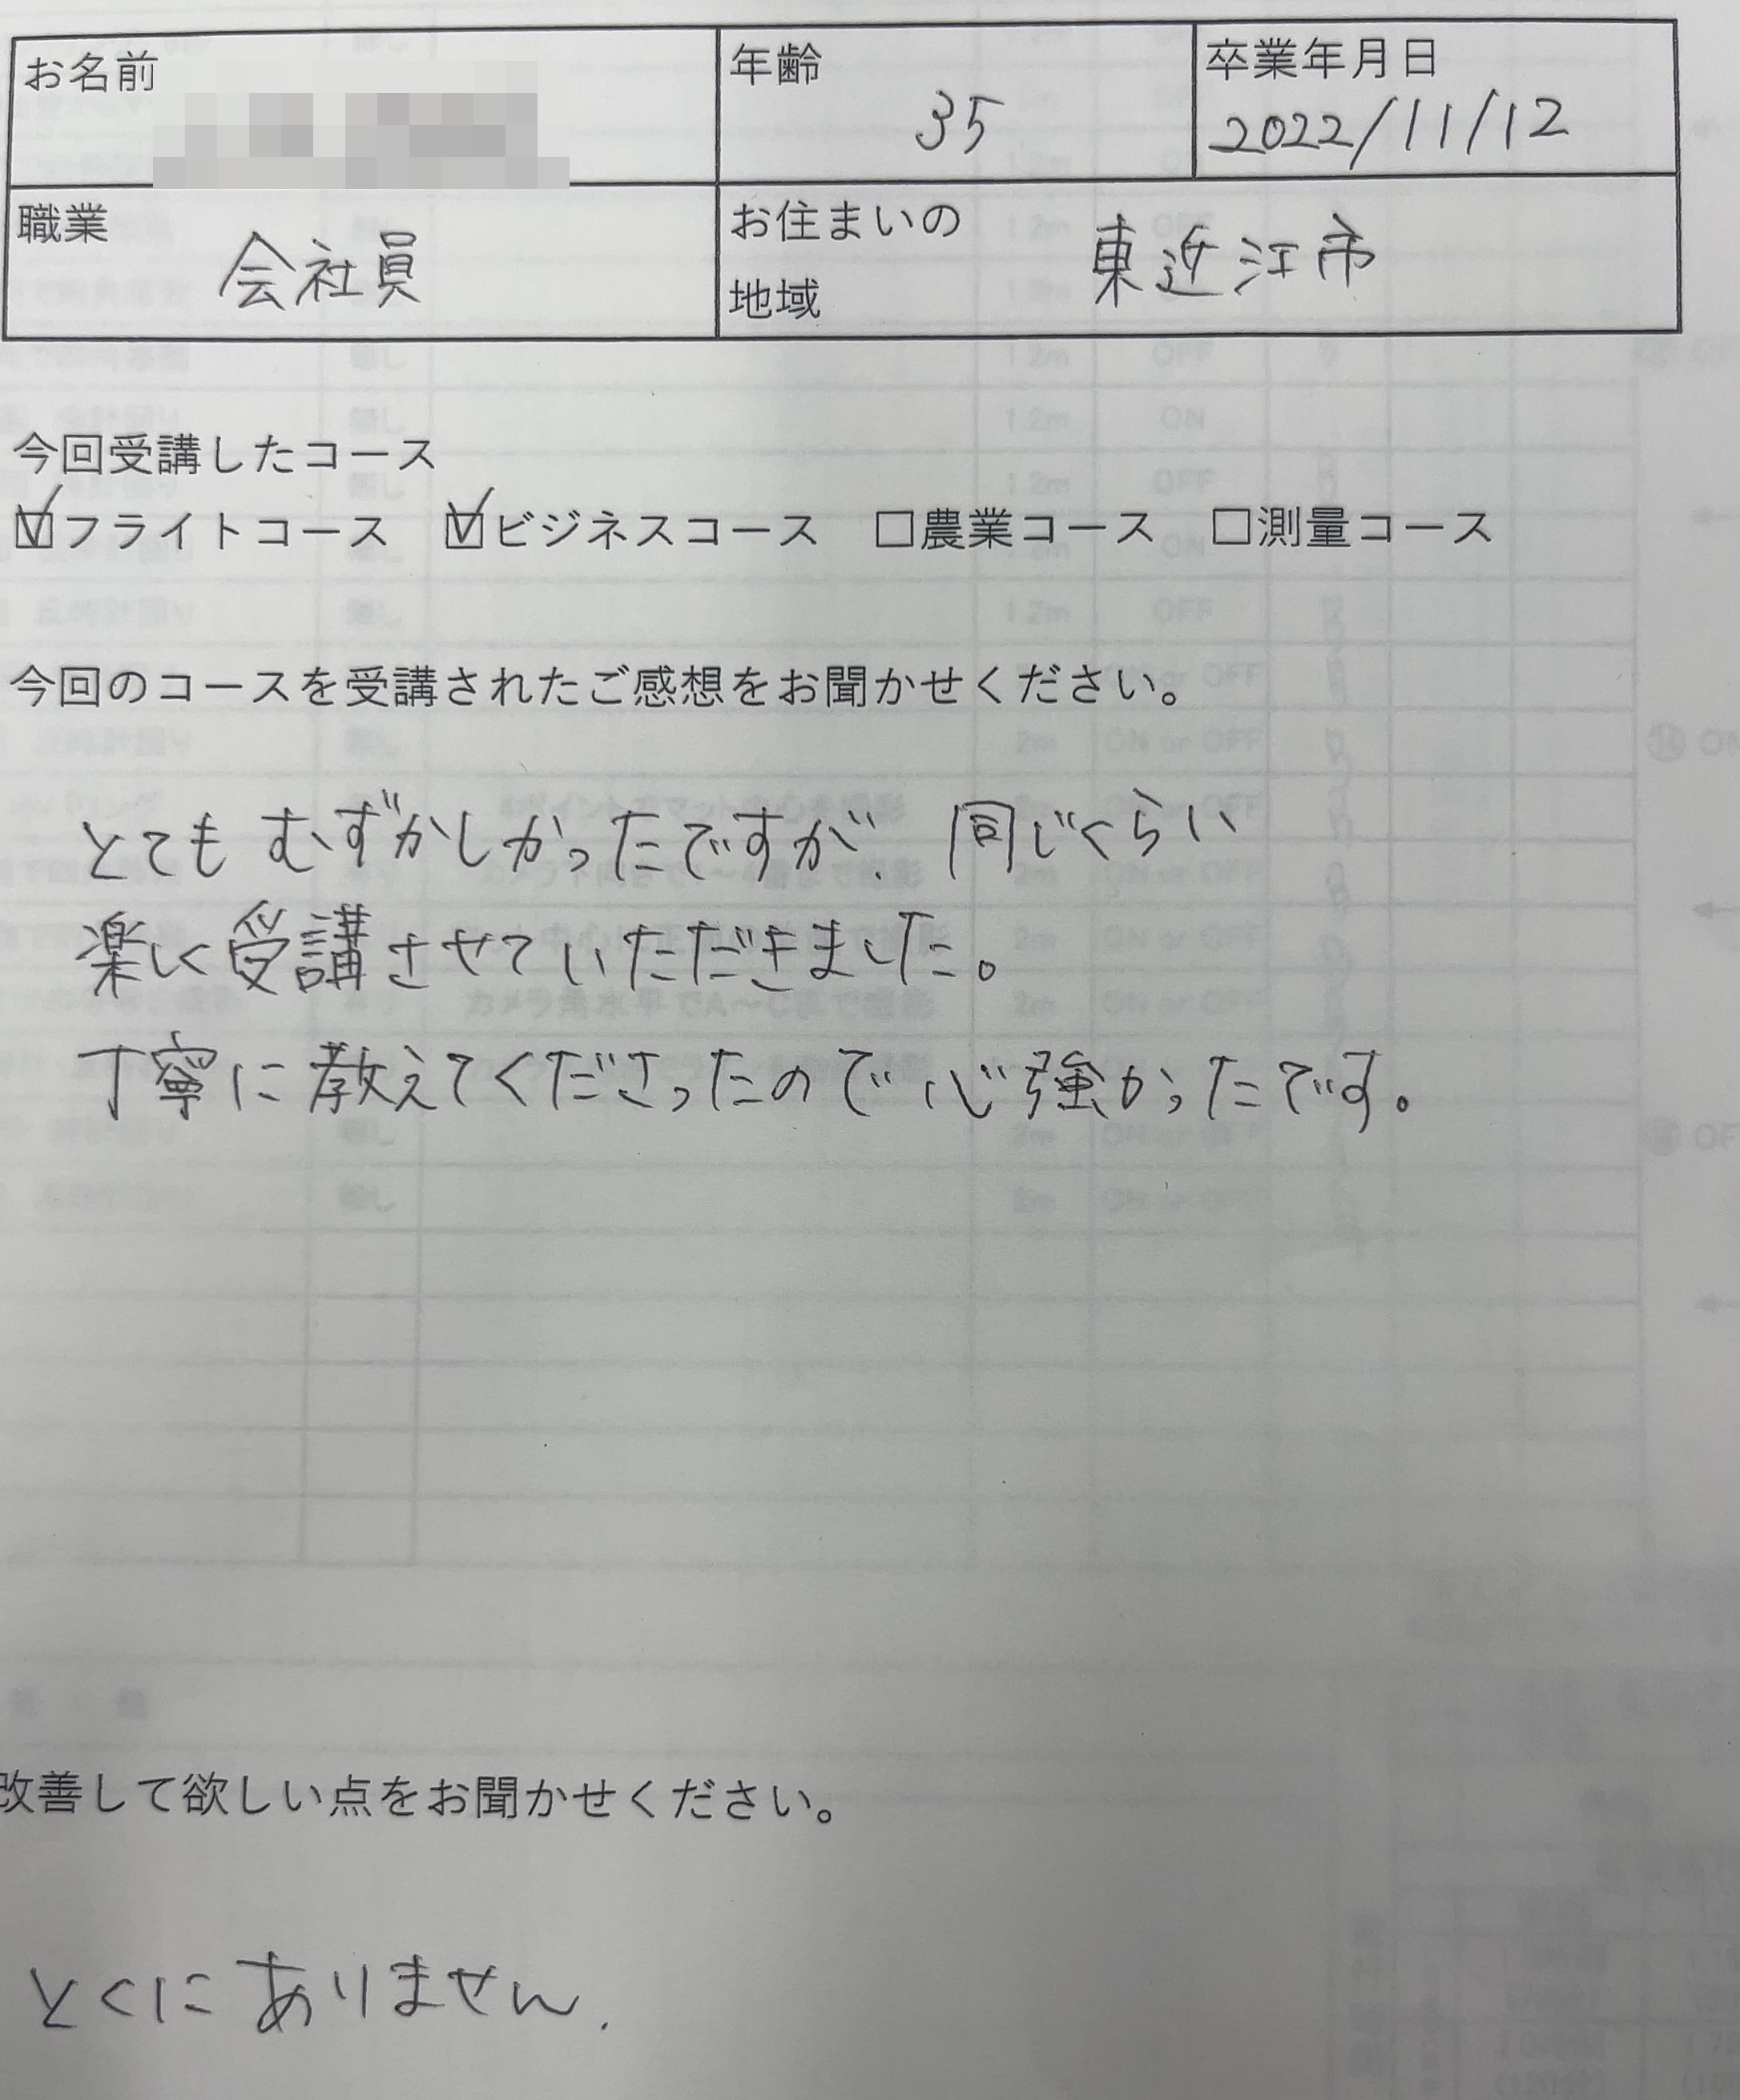 お名前
年齢
35
卒業年月日
2022/11/12
職業
会社員
お住まいの
地域
東近江市
今回受講したコース
☑フライトコース ☑ビジネスコース □農業コース □測量コース
今回のコースを受講されたご感想をお聞かせください。
とてもむずかしかったですが、同じくらい
楽しく受講させていただきました。
丁寧に教えてくださったので心強かったです。
改善して欲しい点をお聞かせください。
とくにありません.